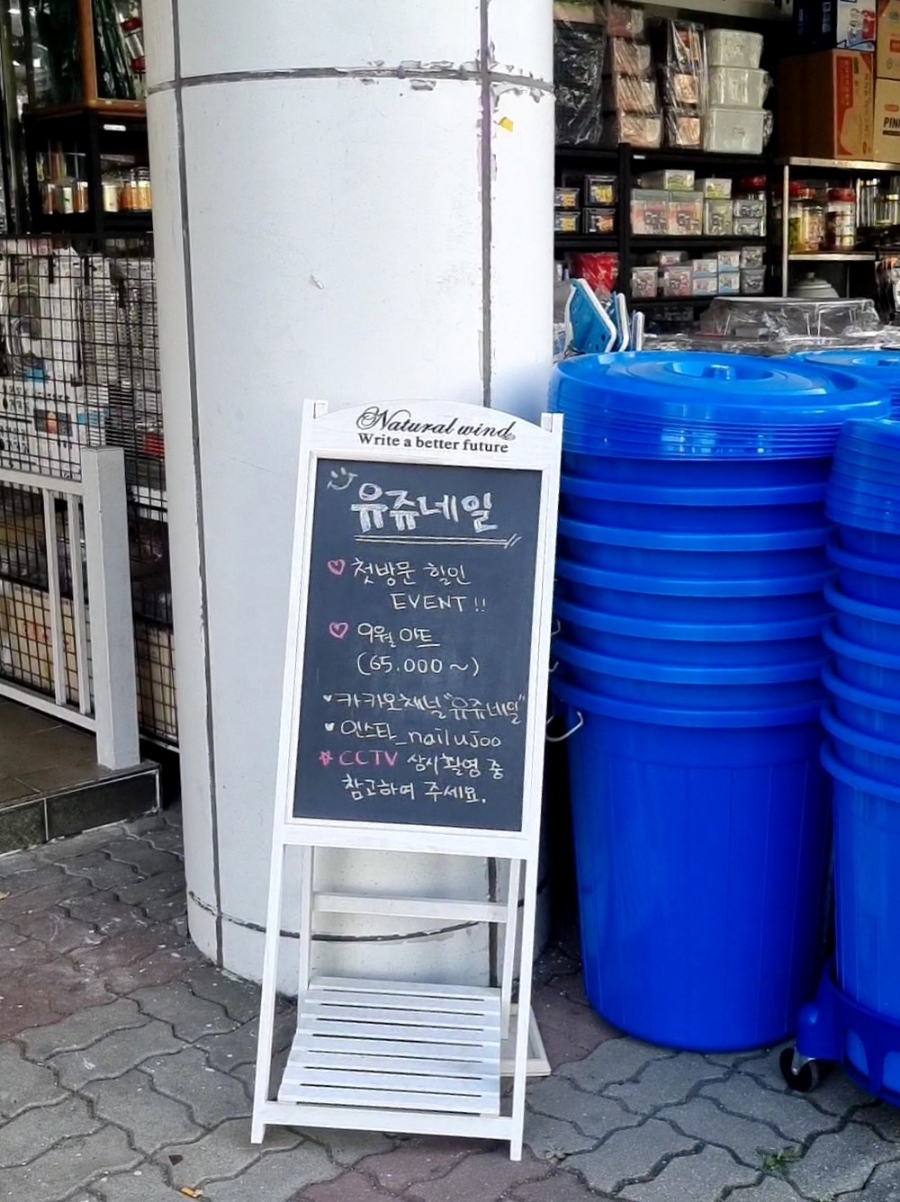 Natural wind
Write a better future
유쥬네일
첫방문 할인
EVENT!!
9월 아트
(65.000~)
카카오채널 "유쥬네일"
인스타_nailujoo
CCTV 상시촬영 중
참고하여 주세요.